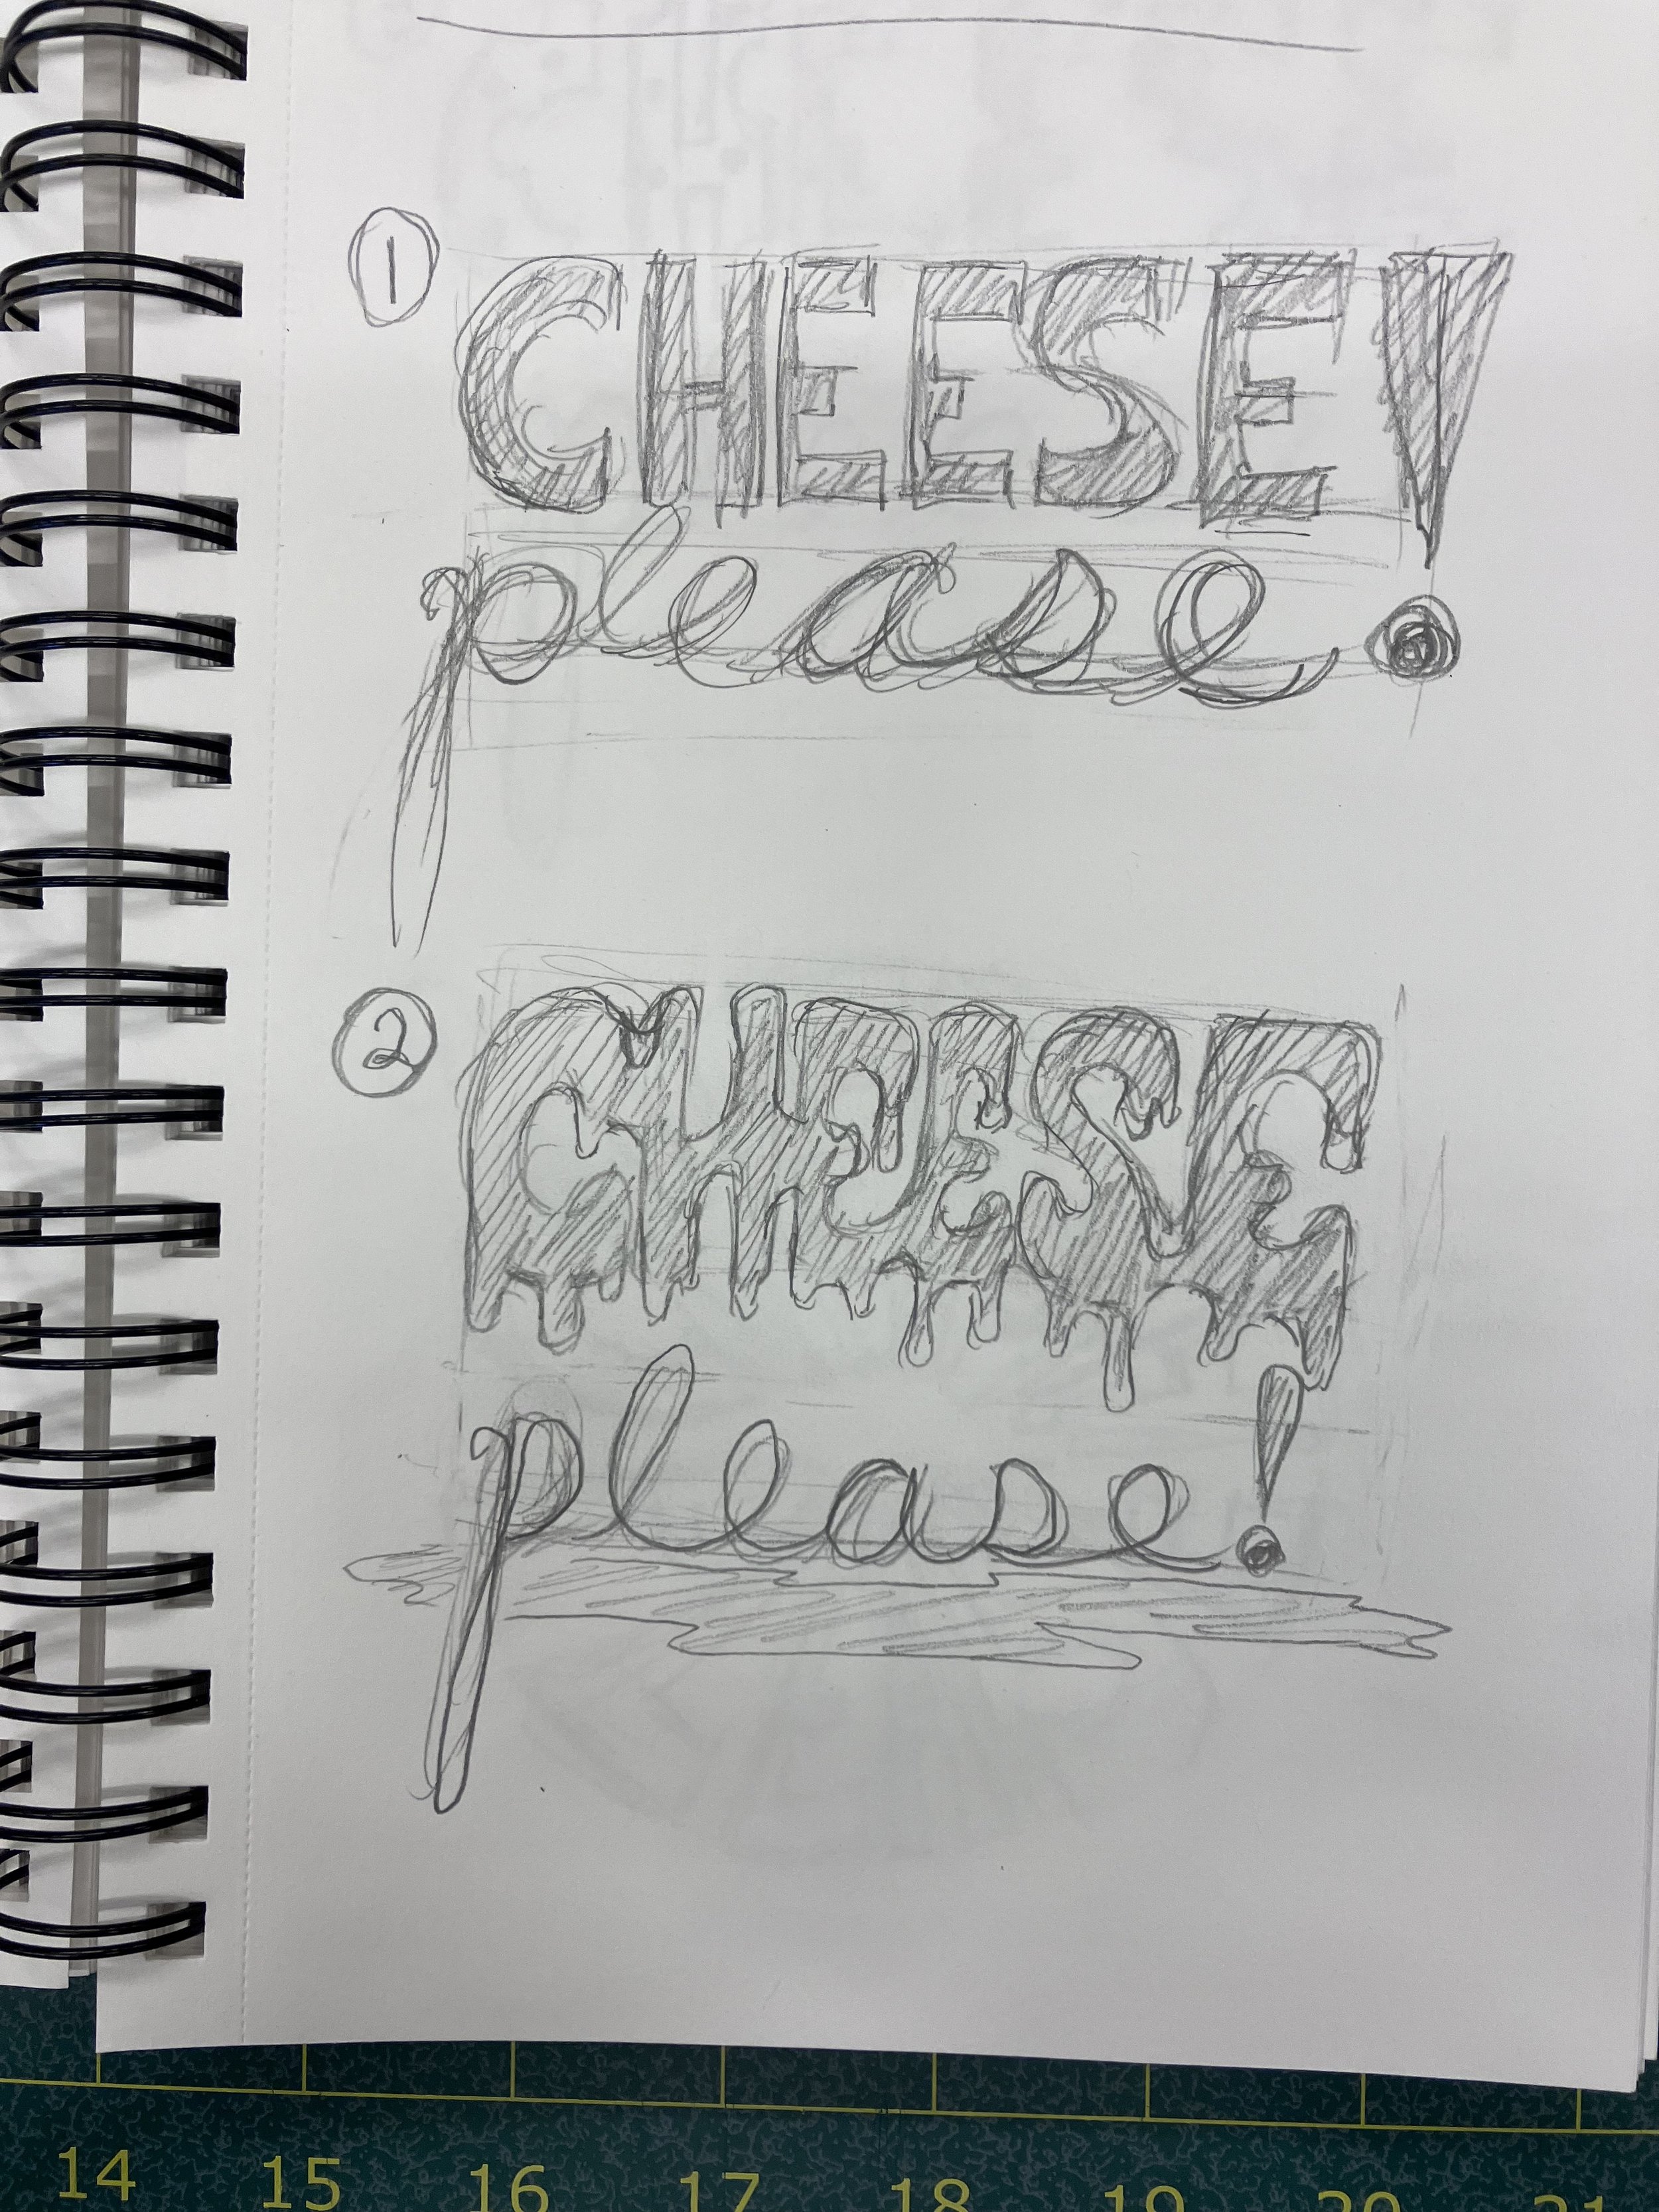 1
CHEESE!
please
2
CHEESE
please!
14 15 16 17 18 19 20 21